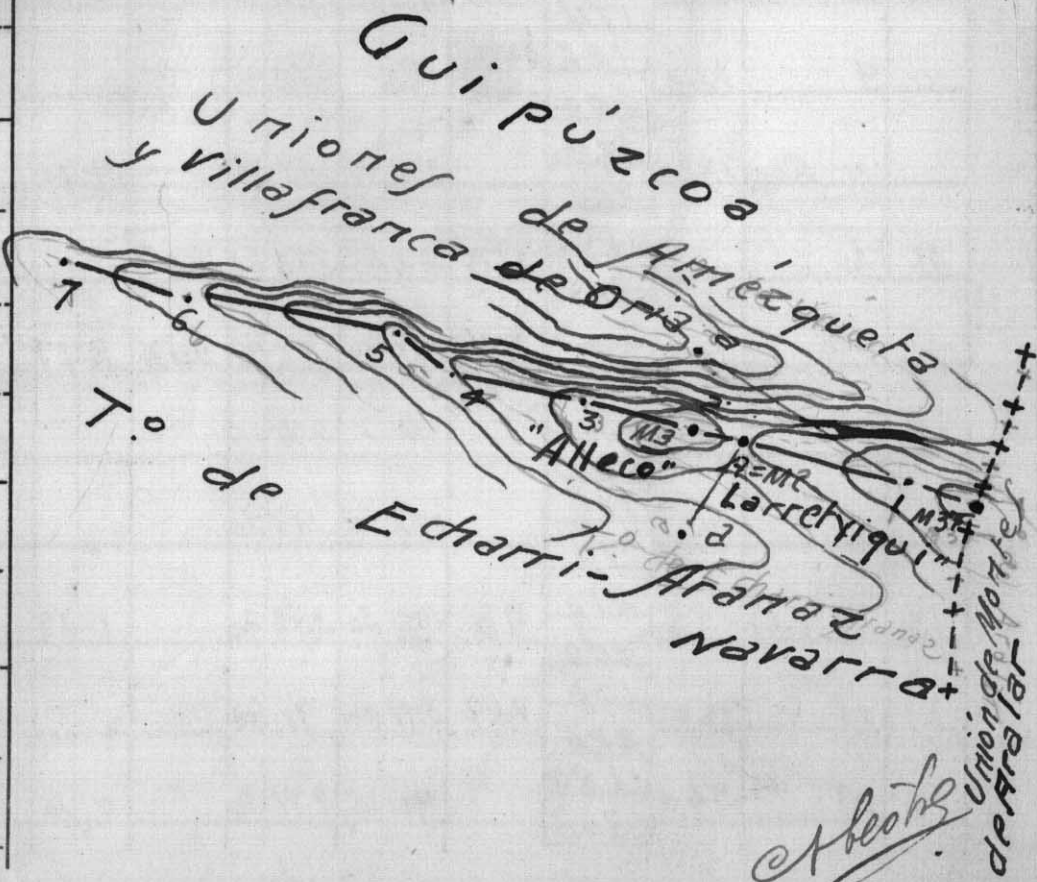 Guipúzcoa
Uniones de Amézqueta
y Villafranca de Oria
a
7
6
5
4
3
2
M3
"Alleco"
2=M2
Larretyiqui"
1
M3T
a
T.o de Echarri-Aranaz
Navarra
Unión de Montes
de Aralar